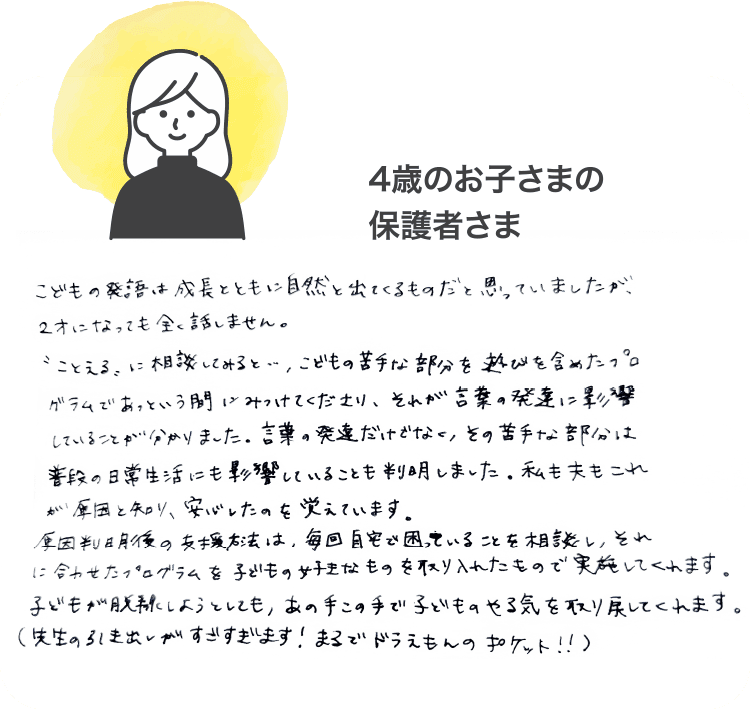 4歳のお子さまの
保護者さま
こどもの発語は成長とともに自然と出てくるものだと思っていましたが、
2才になっても全く話しません。
〝ことえる〟に相談してみると…、こどもの苦手な部分を遊びを含めたプロ
グラムであっという間にみつけてくださり、それが言葉の発達に影響
していることが分かりました。言葉の発達だけでなく、その苦手な部分は
普段の日常生活にも影響していることも判明しました。私も夫もこれ
が原因と知り、安心したのを覚えています。
原因判明後の支援方法は、毎回自宅で困っていることを相談し、それ
に合わせたプログラムを子どもの好きなものを取り入れたもので実施してくれます。
子どもが脱線しようとしても、あの手この手で子どものやる気を取り戻してくれます。
(先生の引き出しがすごすぎます！まるでドラえもんのポケット!!)